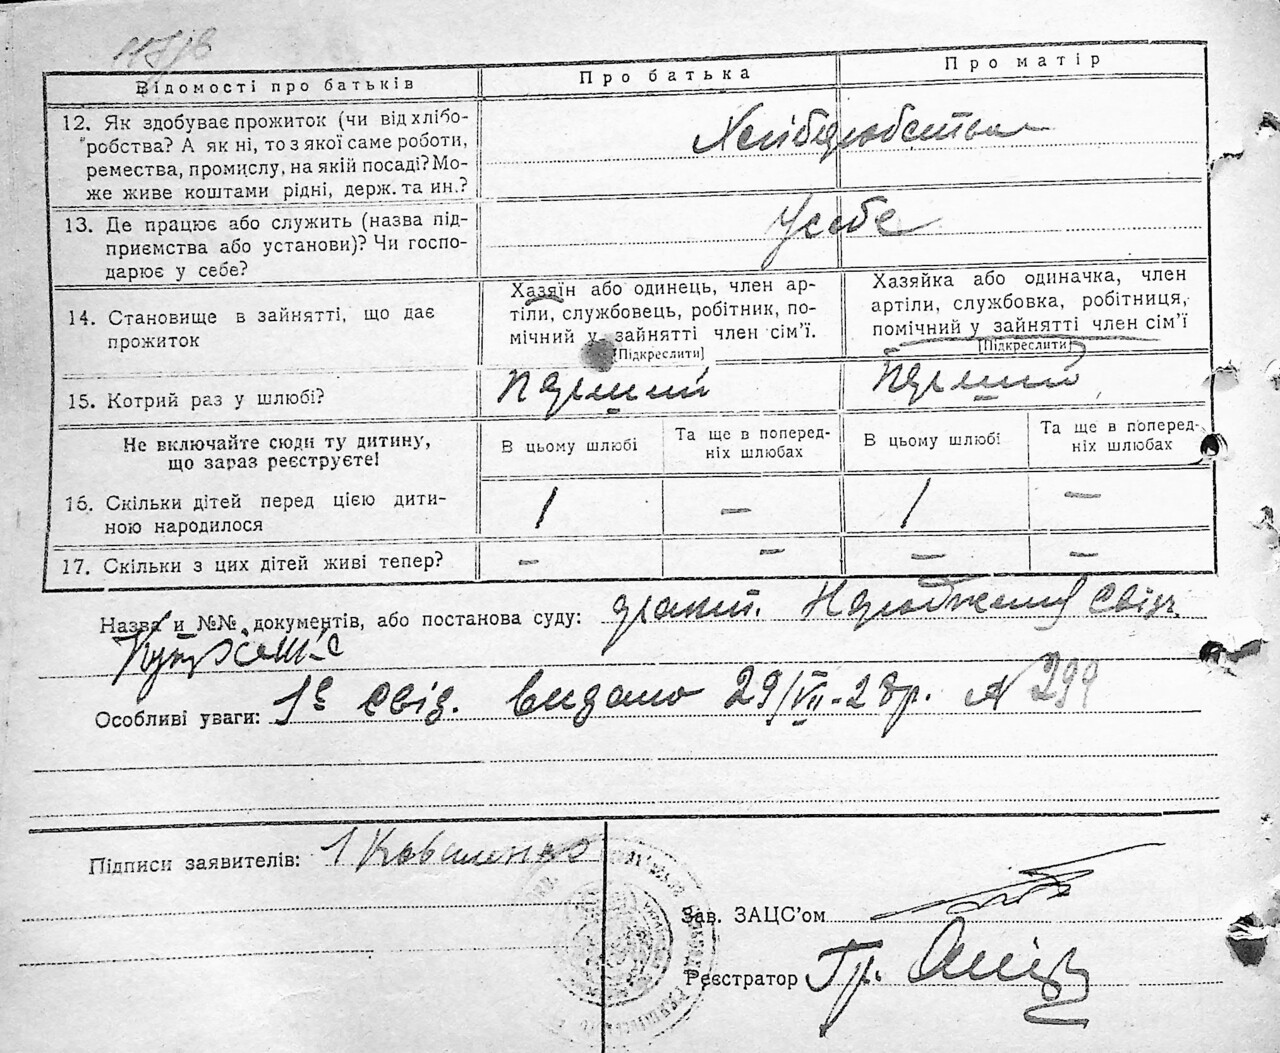 Відомості про батьків
Про батька
Про матір
12. Як здобуває прожиток (чи від хлібо-
робства? А як ні, то з якої саме роботи,
ремества, промислу, на якій посаді? Мо-
же живе коштами рідні, держ. та ин.?
Хліборобством
13. Де працює або служить (назва під-
приємства або установи)? Чи госпо-
дарює у себе?
У себе
14. Становище в зайнятті, що дає
прожиток
Хазяїн або одинець, член ар-
тіли, службовець, робітник, по-
мічний у зайнятті член сім'ї.
[Підкреслити]
Хазяйка або одиначка, член
артіли, службовка, робітниця,
помічний у зайнятті член сім'ї
[Підкреслити]
15. Котрий раз у шлюбі?
Перший
Перший
Не включайте сюди ту дитину,
що зараз реєструєте!
В цьому шлюбі
Та ще в поперед-
ніх шлюбах
В цьому шлюбі
Та ще в поперед-
ніх шлюбах
16. Скільки дітей перед цією дити-
ною народилося
1
—
1
—
17. Скільки з цих дітей живі тепер?
—
—
—
—
Назва и №№ документів, або постанова суду: Народження свідч.
Особливі уваги: свід. видано 29/VII-28р. № 299
Підписи заявителів: Коваленко
Зав. ЗАЦС'ом
Реєстратор Гр.